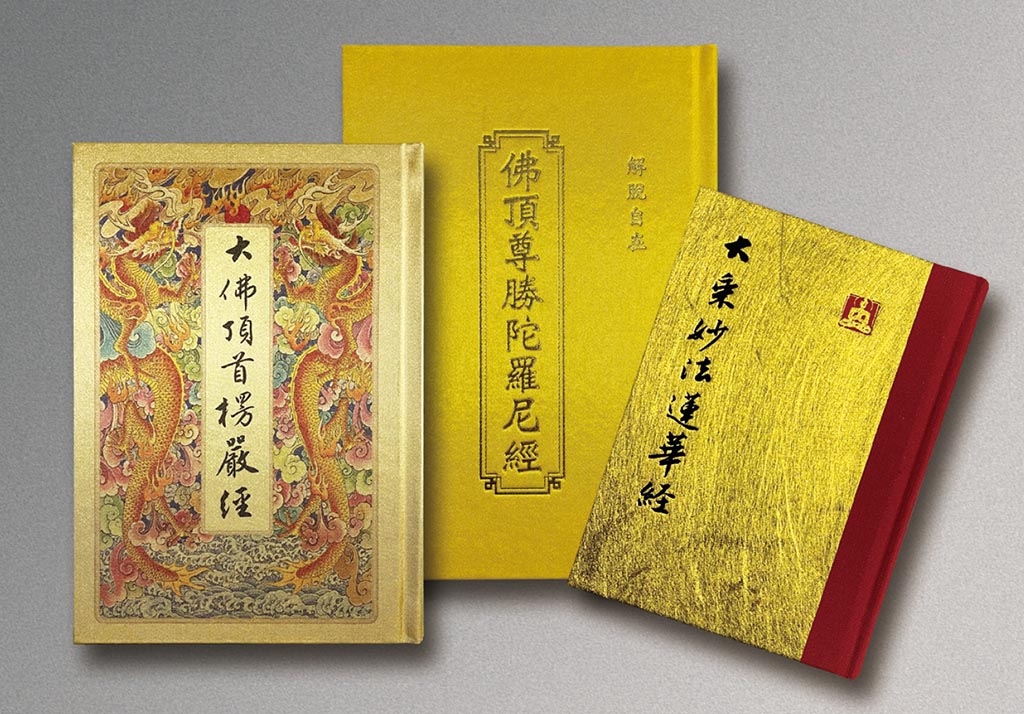 大佛頂首楞嚴經
佛頂尊勝陀羅尼經
解脫自在
大乘妙法蓮華經